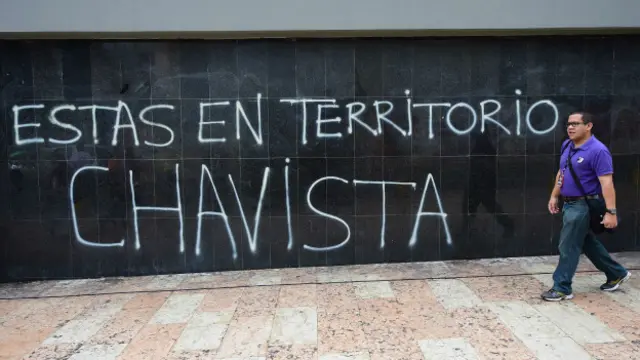 ESTAS EN TERRITORIO
CHAViSTA